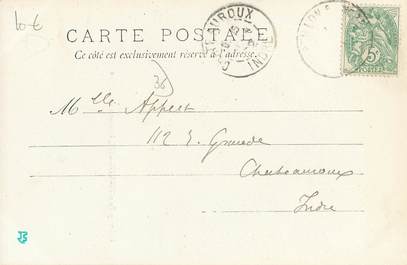 10 €
CARTE POSTALE
Ce côté est exclusivement réservé à l'adresse.
CHATEAUROUX
5c
POSTES
36
Mlle Appert
112 E. Grande
Chateauroux
Indre